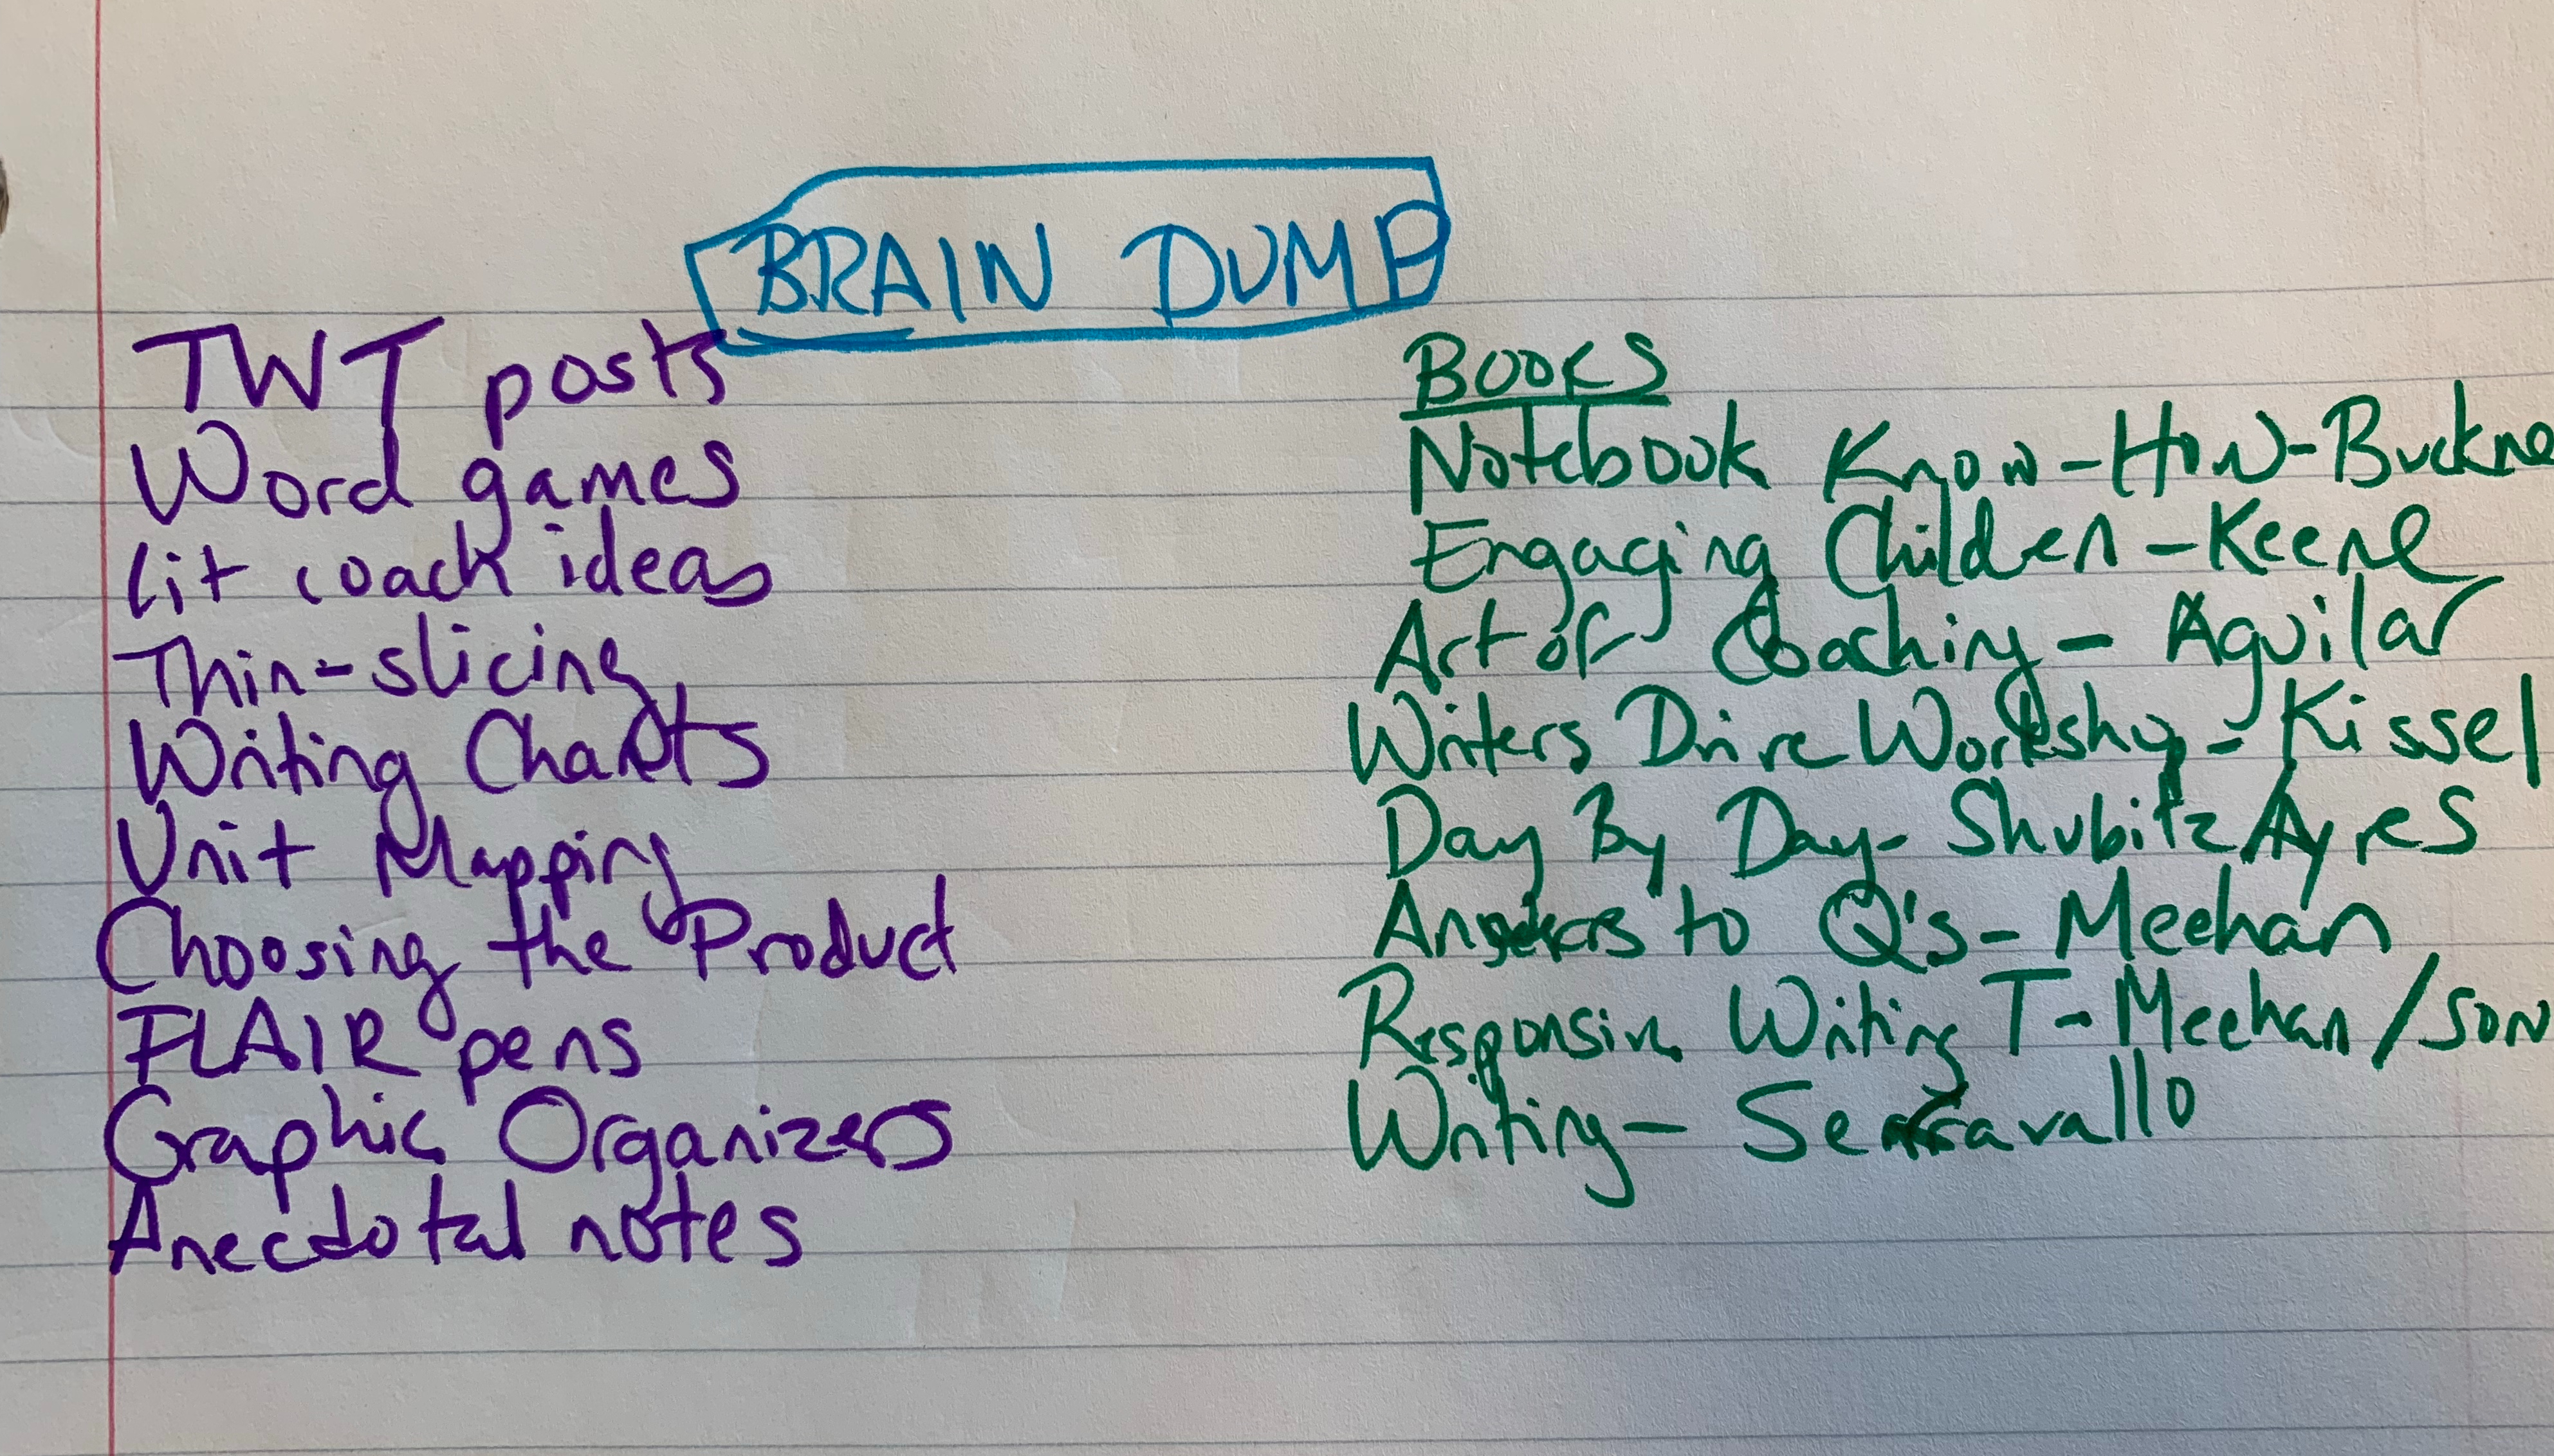 BRAIN DUMP
TWT posts
Word games
Lit coach ideas
Thin-slicing
Writing Charts
Unit Mapping
Choosing the Product
FLAIR pens
Graphic Organizers
Anecdotal notes
BOOKS
Notebook Know-How-Buckne
Engaging Children-Keene
Art of Coaching- Aguilar
Writers Drive Workshop- Kissel
Day By Day- Shubitz Ayres
Answers to Q's- Meehan
Responsive Writing T-Meehan/SOR
Writing- Serravallo